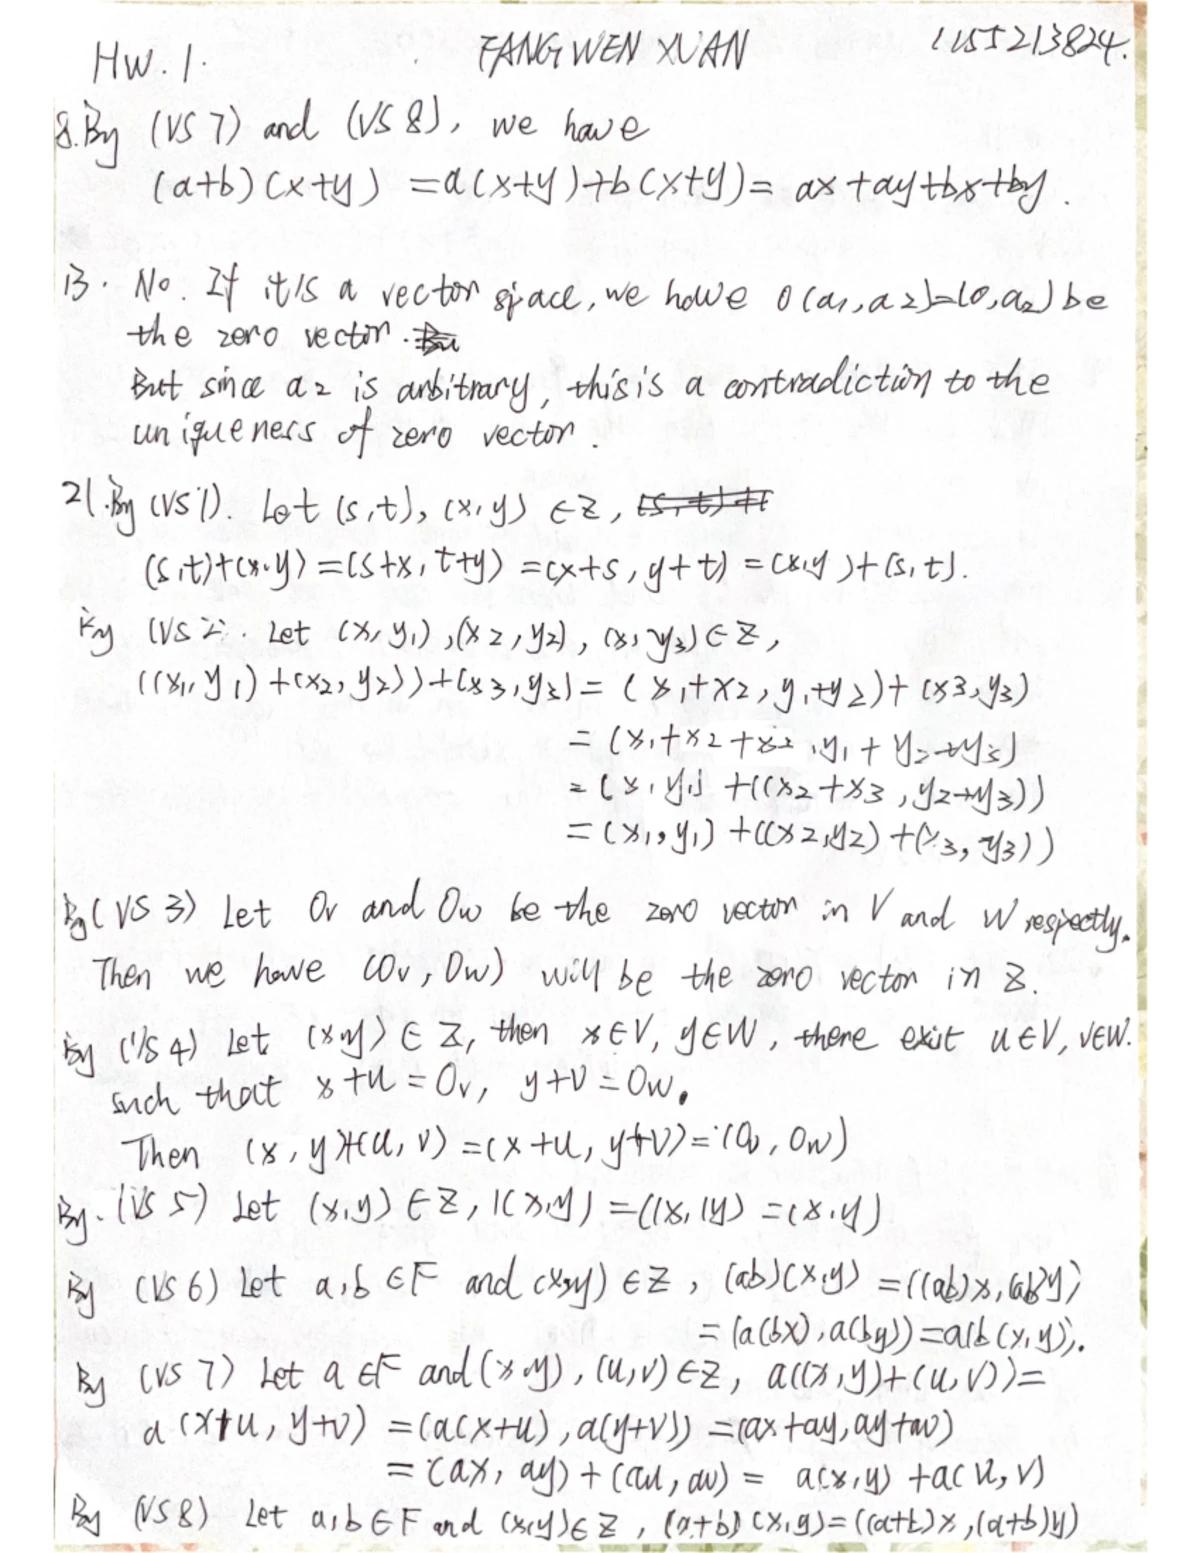 HW. 1. FANG WEN XUAN 1155213824.
8. By (VS 7) and (VS 8), we have
(a+b)(x+y) = a(x+y)+b(x+y) = ax+ay+bx+by.
13. No. If it is a vector space, we have 0(a1,a2)=(0,a2) be
the zero vector.
But since a2 is arbitrary, this is a contradiction to the
uniqueness of zero vector.
21. By (VS 1). Let (s,t), (x,y) ∈ Z,
(s,t)+(x,y) = (s+x, t+y) = (x+s, y+t) = (x,y)+(s,t).
By (VS 2). Let (x1,y1), (x2,y2), (x3,y3) ∈ Z,
((x1,y1)+(x2,y2))+(x3,y3) = (x1+x2, y1+y2)+(x3,y3)
= (x1+x2+x3, y1+y2+y3)
= (x1,y1)+((x2+x3, y2+y3))
= (x1,y1)+((x2,y2)+(x3,y3))
By (VS 3) Let 0v and 0w be the zero vector in V and W respectly.
Then we have (0v, 0w) will be the zero vector in Z.
By (VS 4) Let (x,y) ∈ Z, then x∈V, y∈W, there exit u∈V, v∈W.
such that x+u = 0v, y+v = 0w.
Then (x,y)+(u,v) = (x+u, y+v) = (0v, 0w)
By. (VS 5) Let (x,y) ∈ Z, 1(x,y) = (1x, 1y) = (x,y)
By (VS 6) Let a,b ∈ F and (x,y) ∈ Z, (ab)(x,y) = ((ab)x, (ab)y)
= (a(bx), a(by)) = a(b(x,y)).
By (VS 7) Let a ∈ F and (x,y), (u,v) ∈ Z, a((x,y)+(u,v)) =
a(x+u, y+v) = (a(x+u), a(y+v)) = (ax+ay, ay+av)
= (ax, ay) + (au, av) = a(x,y) + a(u,v)
By (VS 8) Let a,b ∈ F and (x,y) ∈ Z, (a+b)(x,y) = ((a+b)x, (a+b)y)